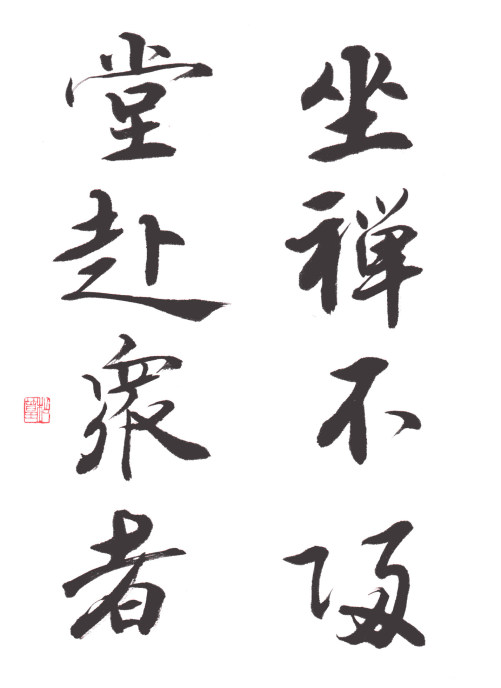 坐禅不随
堂赴衆者